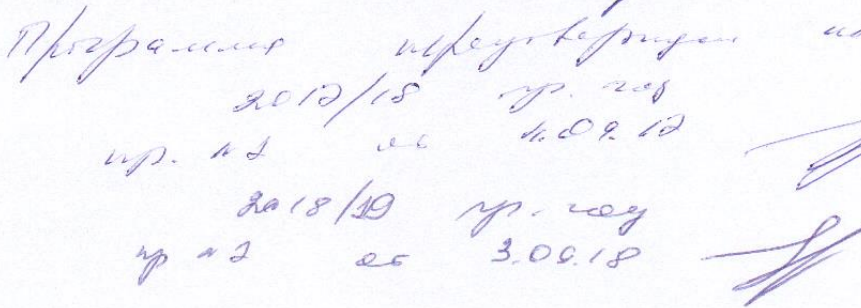 Программа переутверждена на
2017/18 уч. год
пр. №1 от 1.09.17
2018/19 уч. год
пр №1 от 3.09.18